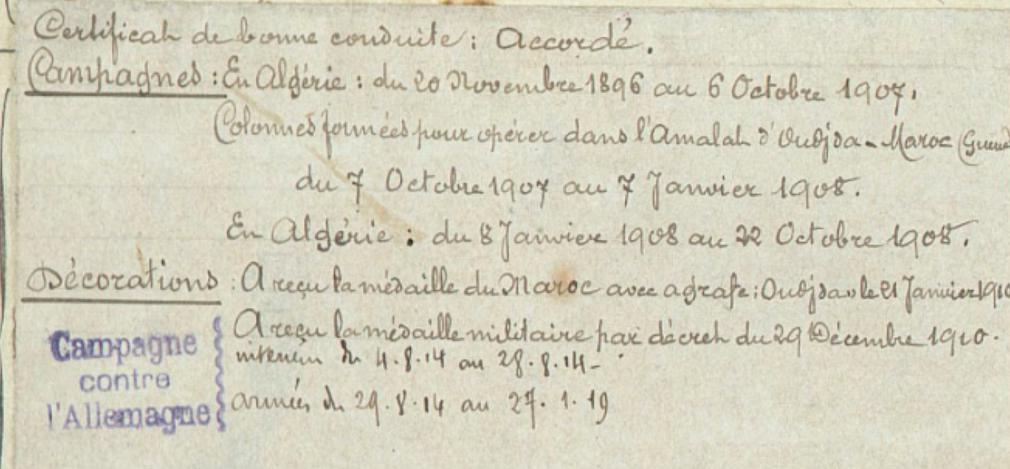 Certificat de bonne conduite : Accordé.
Campagnes : En Algérie : du 20 Novembre 1896 au 6 Octobre 1907.
Colonnes formées pour opérer dans l'Amalah d'Oudjda - Maroc (Guerre
du 7 Octobre 1907 au 7 Janvier 1908.
En Algérie : du 8 Janvier 1908 au 22 Octobre 1908.
Décorations : A reçu la médaille du Maroc avec agrafe : Oudjda le 21 Janvier 1910
A reçu la médaille militaire par décret du 29 Décembre 1910.
Campagne contre l'Allemagne
intérieur du 4.8.14 au 28.8.14 -
armées du 29.8.14 au 27.1.19